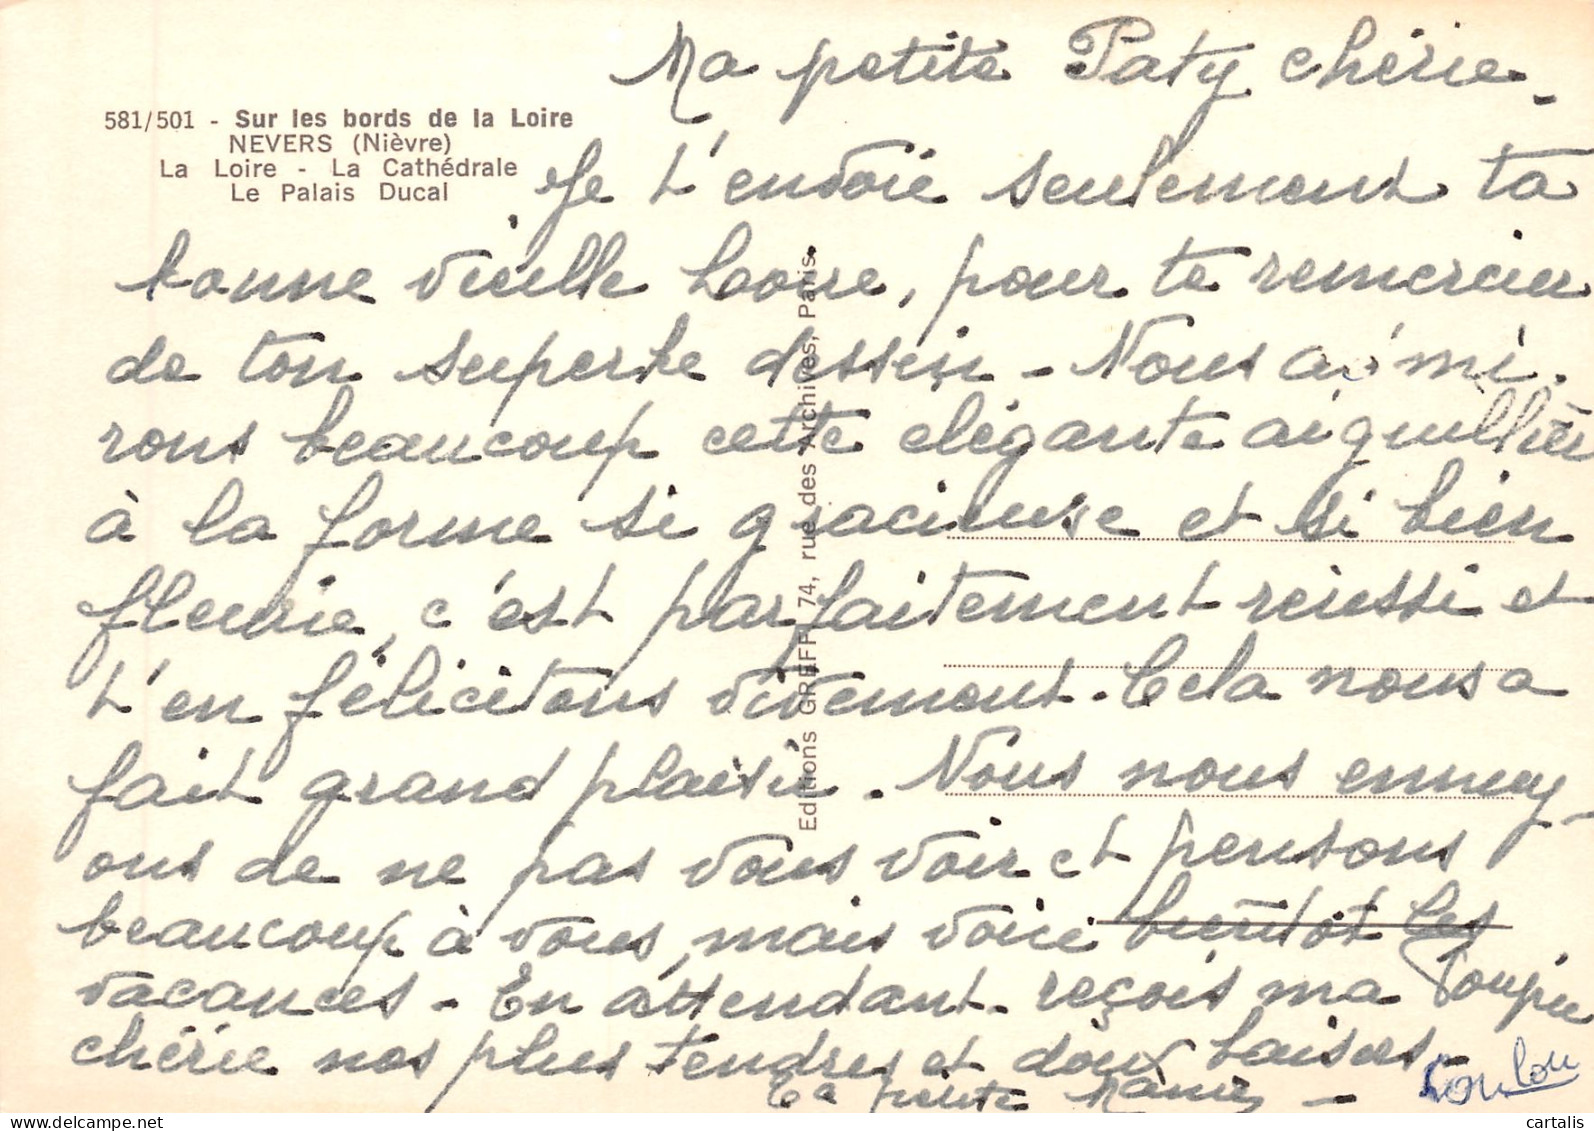 Ma petite Paty chérie -
581/501 - Sur les bords de la Loire
NEVERS (Nièvre)
La Loire - La Cathédrale
Le Palais Ducal
Je t'envoie seulement ta
bonne vieille Loire, pour te remercier
de ton superbe dessin - Nous admi-
rons beaucoup cette elégante aiguillière
à la forme si gracieuse et si bien
fleurie, c'est parfaitement réussi et
t'en félicitons vivement. Cela nous a
fait grand plaisir. Nous nous ennuy-
ons de ne pas vous voir et pensons
beaucoup à vous, mais voici bientôt les
vacances - En attendant reçois ma Poupée
chérie nos plus tendres et doux baisers -
Ta petite Mamie -
Loulou
Editions GREFF, 74, rue des Archives, Paris.
www.delcampe.net
cartalis